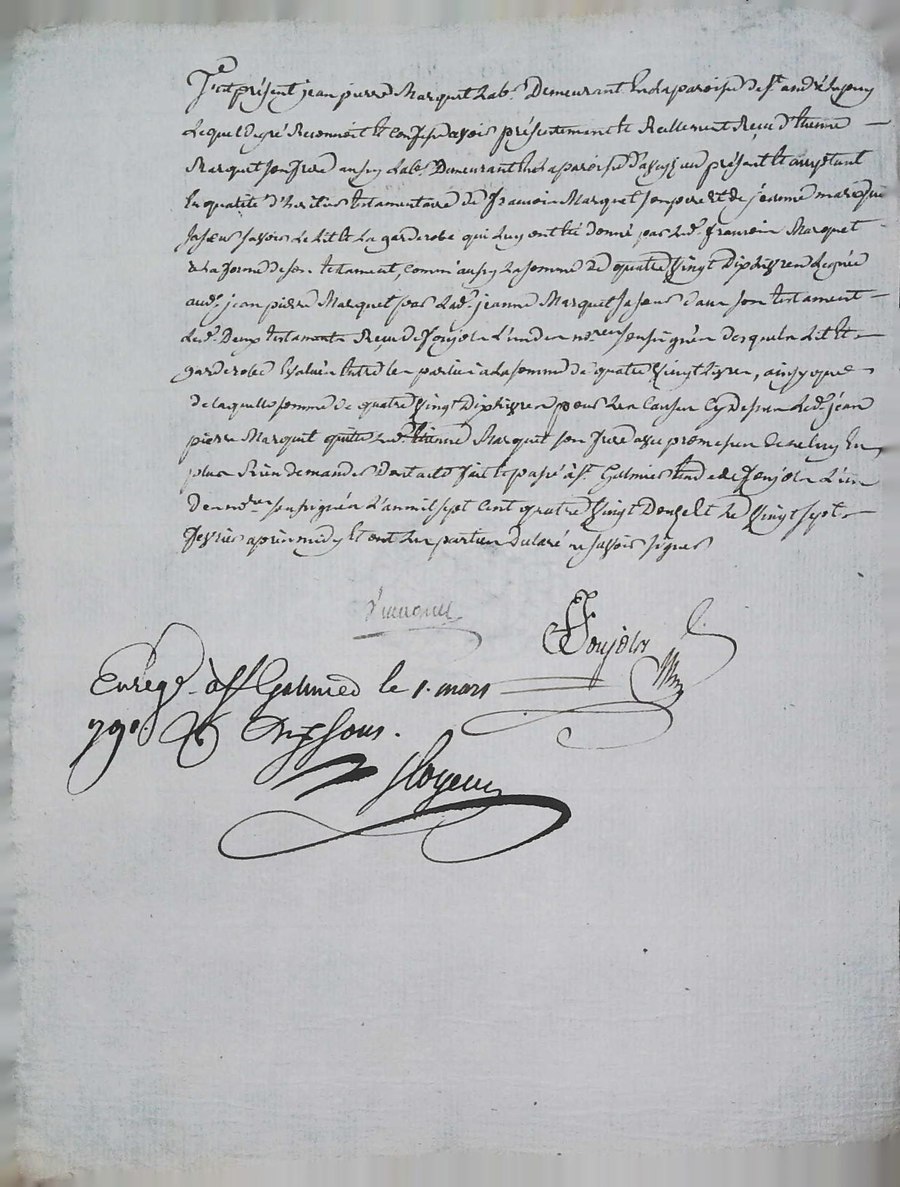 Fut présent jean pierre Marquet lab.r Demeurant En la paroisse de S.t andré
Lequel degré Reconnoit et confesse avoir présentement et Reellement Reçu d'Etienne
Marquet son frere aussy lab.r Demeurant En la paroisse présent et acceptant
En qualité d'heritier testamentaire de francois Marquet son pere et de jeanne marquet
sa soeur savoir Le Lit et La garderobe qui luy ont été donné par led. francois Marquet
de la forme de son testament, comm'aussy la somme de quatre Vingt Dix livres Leguée
aud. jean pierre Marquet par lad. jeanne Marquet sa soeur dans son testament
Lesd. Deux testaments Reçu de Foujols L'un des no.res soussignés desquels Lit et
garderobe Evalués Entre les parties a la somme de quatre Vingt livres, ainsy que
de laquelle somme de quatre Vingt Dix livres pour les causes Cy dessus Led. jean
pierre Marquet quitte led. Etienne Marquet son frere avec promesse de ne luy En
plus Rien demander Dont acte fait et passé à S.t Galmier Etude de Foujols L'un
Des no.res soussignés L'an mil sept Cent quatre Vingt Douze et le Vingt sept
fevrier après midy Et ont les parties declaré ne savoir signer
Foujols
Enreg.é à S.t Galmier le 1. mars
Dix sous.